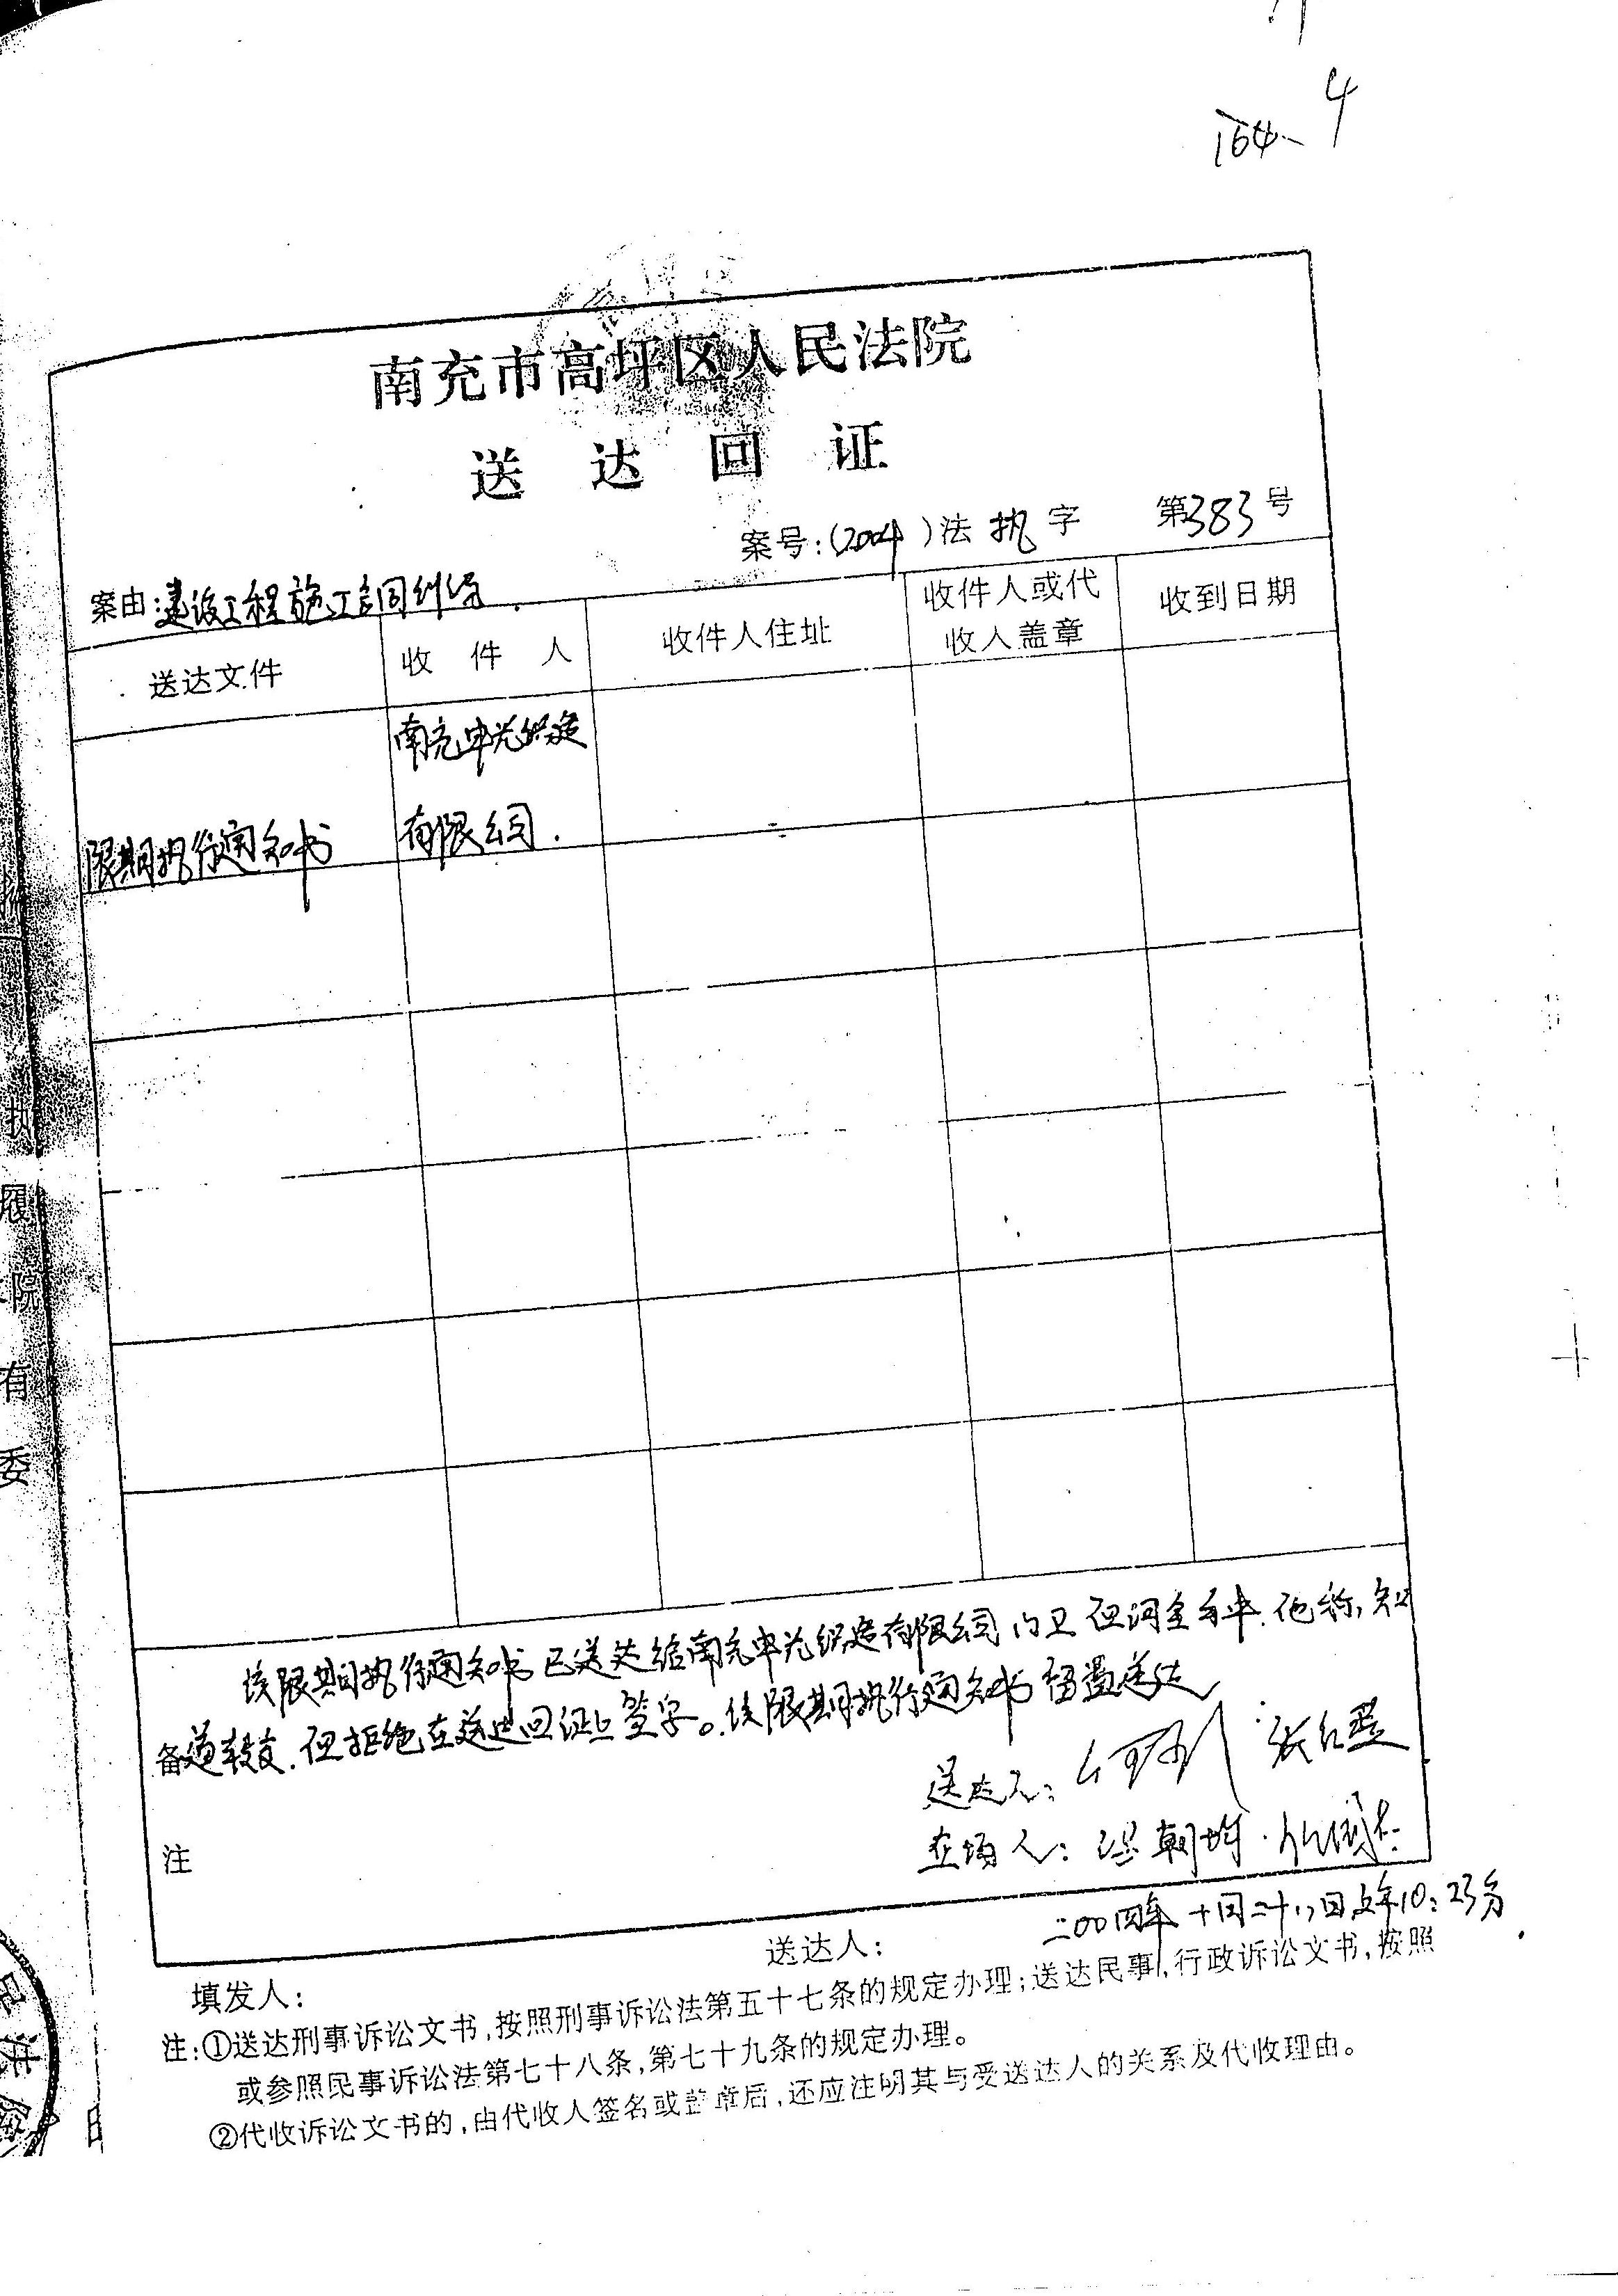 4
164
南充市高坪区人民法院
送达回证
案号:(2004)法执字 第383号
案由:建设工程施工合同纠纷
送达文件 收件人 收件人住址 收件人或代收人盖章 收到日期
限期执行通知书 南充中光织造有限公司.
该限期执行通知书已送达给南充中光织造有限公司门卫 但 他称,知
备道转交.但拒绝在送达回证上签字。该限期执行通知书留置送达
送达人: 张红
在场人: 朝
注
二00四年十月二十八日上午10:23分
填发人: 送达人:
注:①送达刑事诉讼文书,按照刑事诉讼法第五十七条的规定办理;送达民事,行政诉讼文书,按照
或参照民事诉讼法第七十八条,第七十九条的规定办理。
②代收诉讼文书的,由代收人签名或盖章后,还应注明其与受送达人的关系及代收理由。
执
履
院
有
委